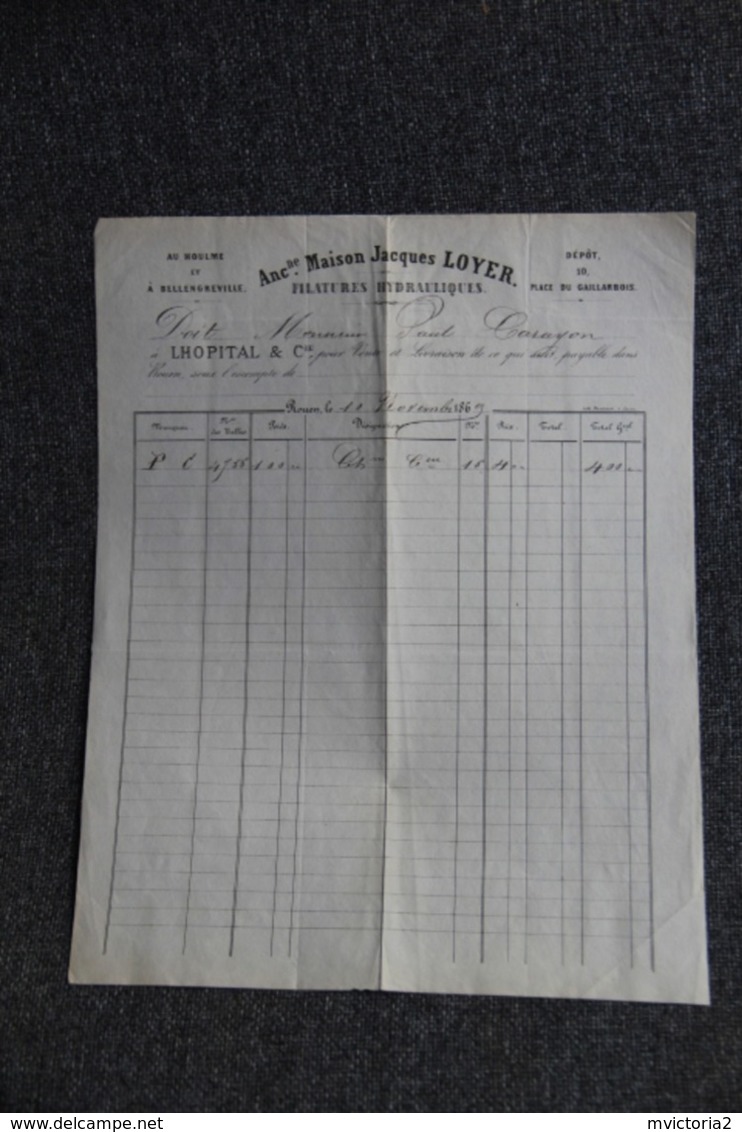 AU HOULME
ET
À BELLENGREVILLE.
Anc.ne Maison Jacques LOYER.
FILATURES HYDRAULIQUES.
DÉPÔT,
10,
PLACE DU GAILLARBOIS.
Doit Monsieur Paul Carayon
à LHOPITAL & Cie pour Vente et Livraison de ce que suit, payable dans
Rouen, sous l'escompte de
Rouen, le 10 Novembre 1869
Marques Nos de Balles Poids Désignation Nos Prix Total Total Gal
P C 4755 100 Ch Cne 15 4 400
delcampe.net
mvictoria2